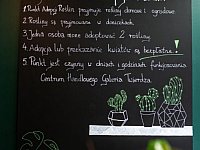 1. Punkt Adopcji Roślin przyjmuje rośliny domowe i ogrodowe.
2. Rośliny są przyjmowane w doniczkach.
3. Jedna osoba może adoptować 2 rośliny
4. Adopcja lub przekazanie kwiatów są bezpłatne!
5. Punkt jest czynny w dniach i godzinach funkcjonowania
Centrum Handlowego Galeria Twierdza